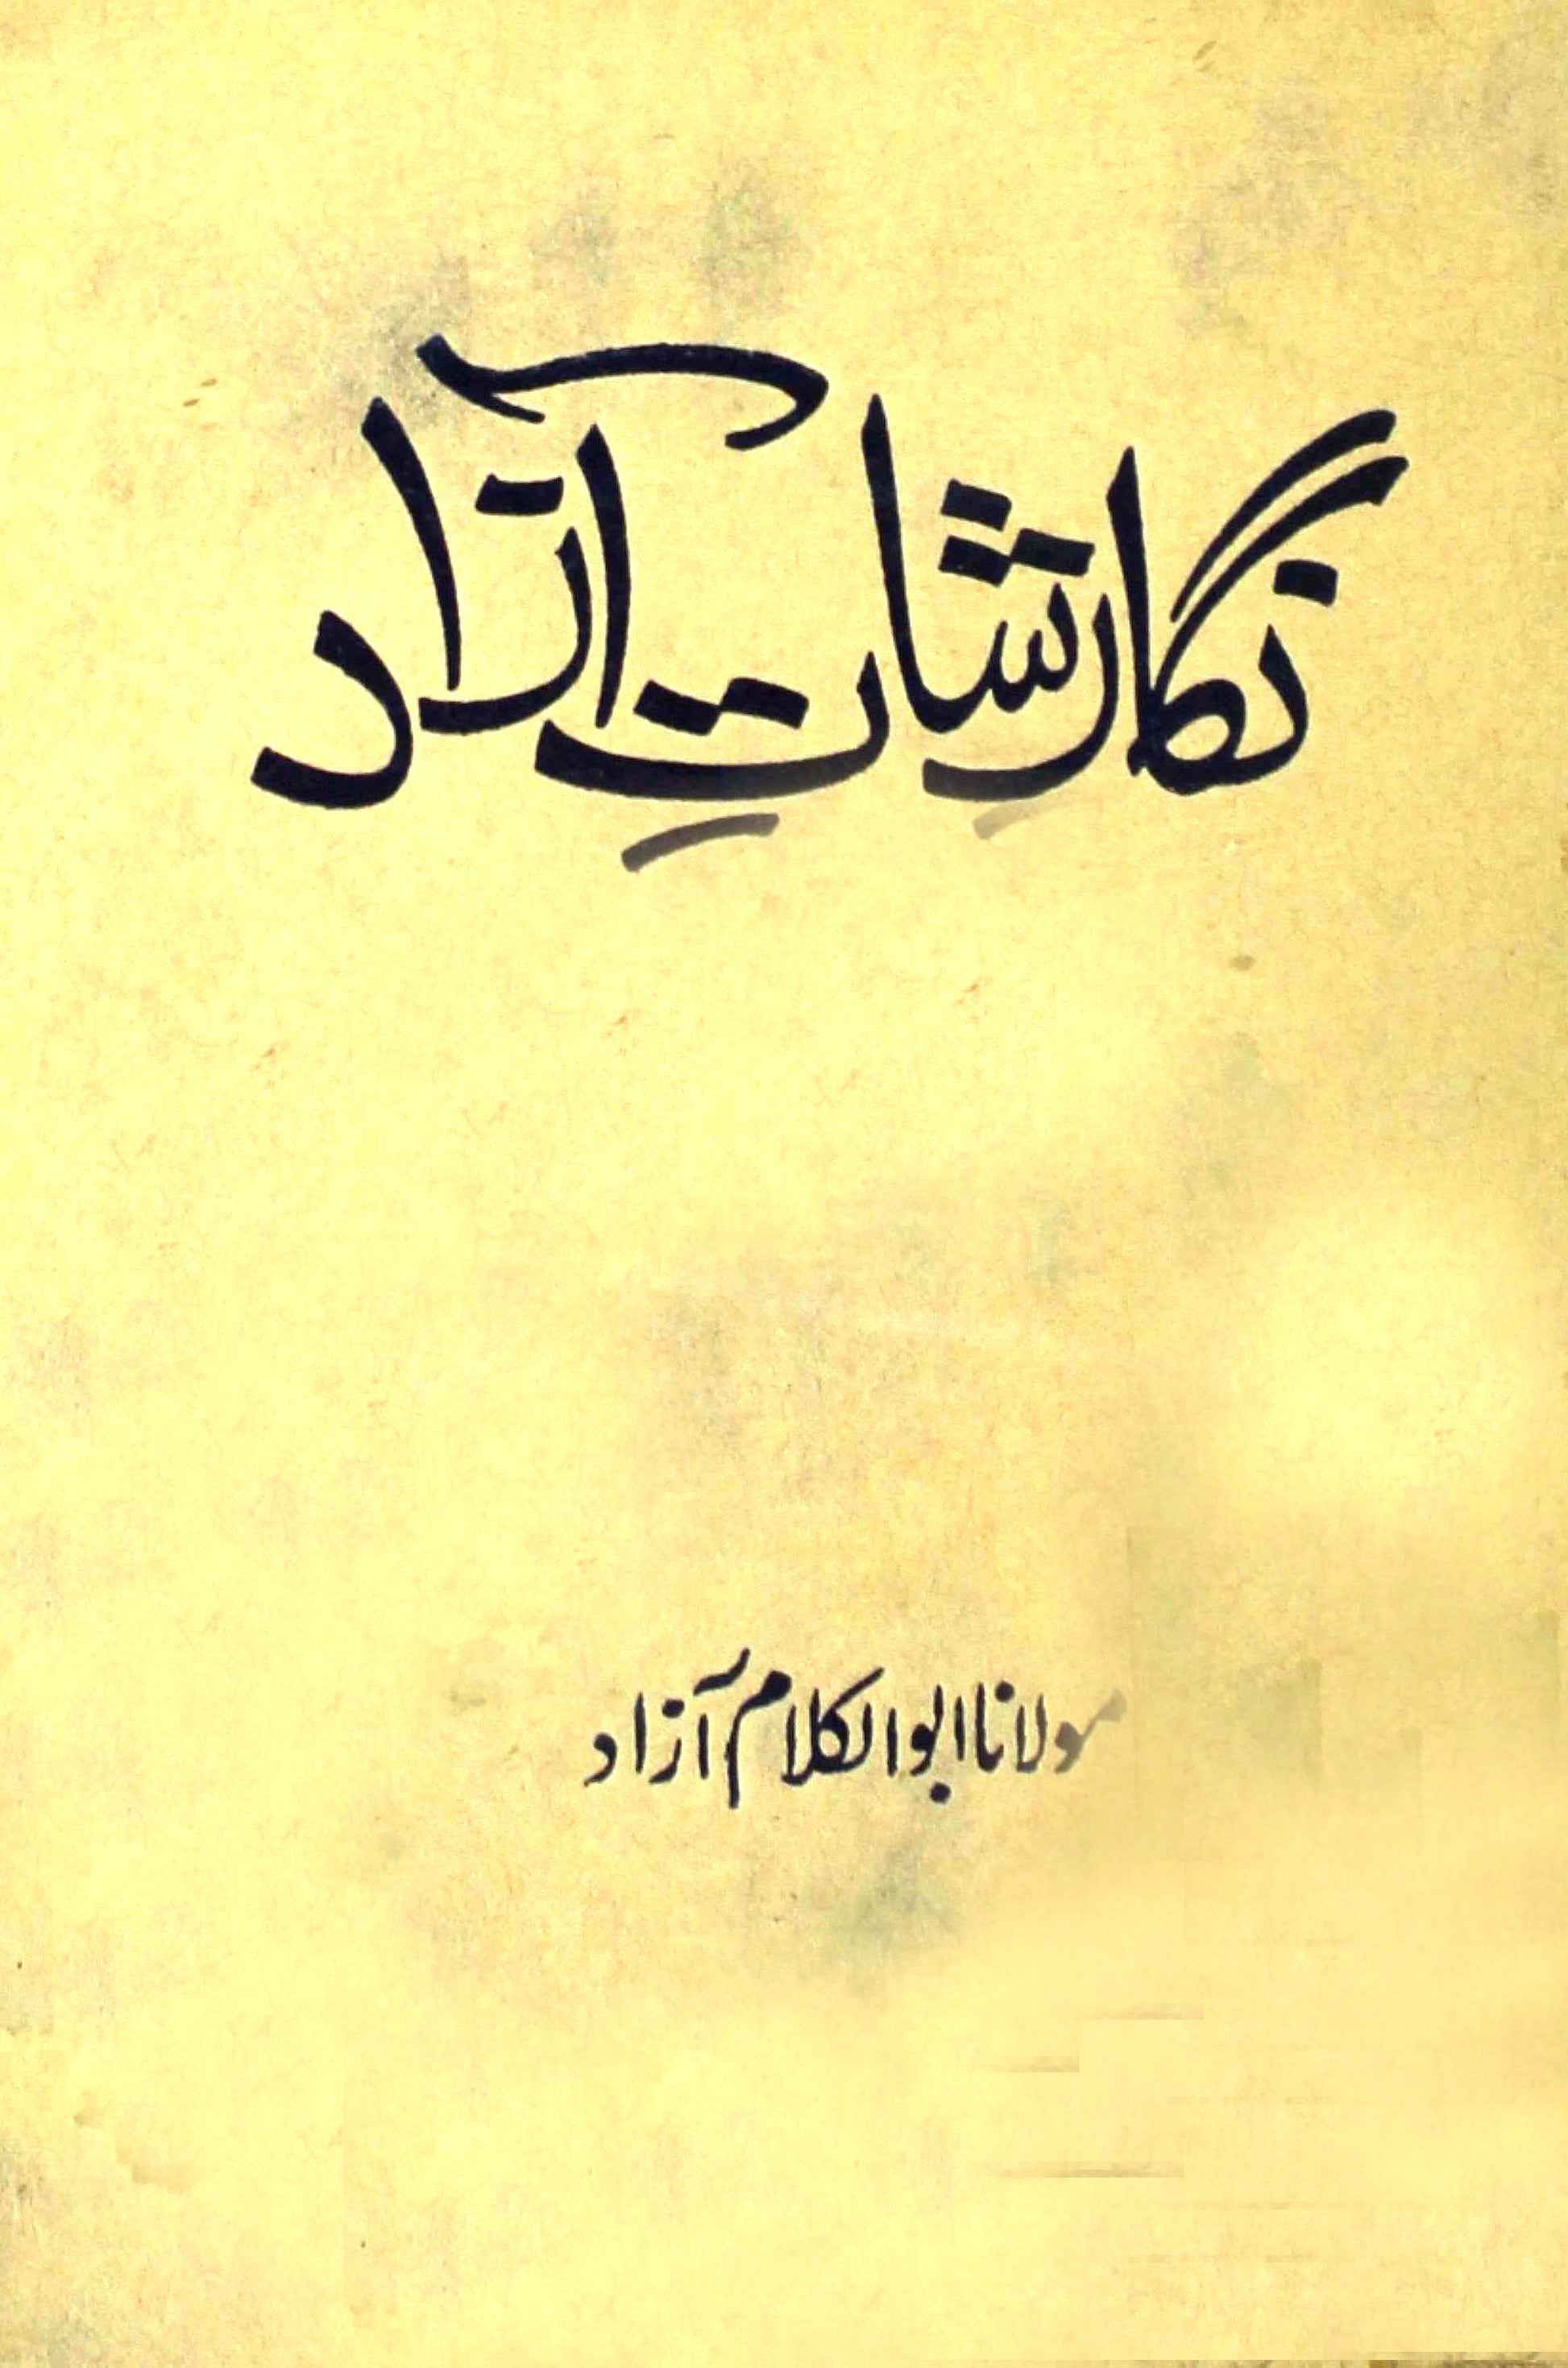 نگارشاتِ آزاد
مولانا ابوالکلام آزاد